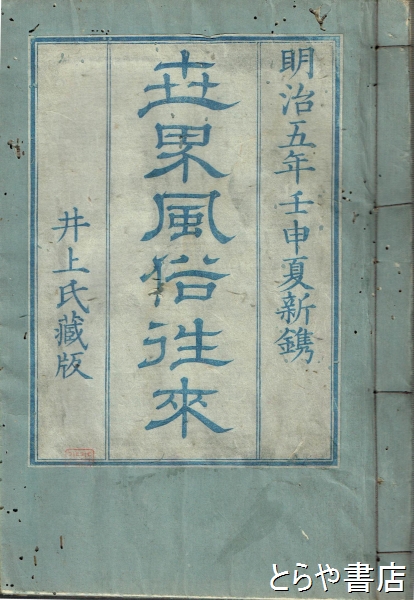 明治五年壬申夏新鐫
丗界風俗往來
井上氏藏版
とらや書店